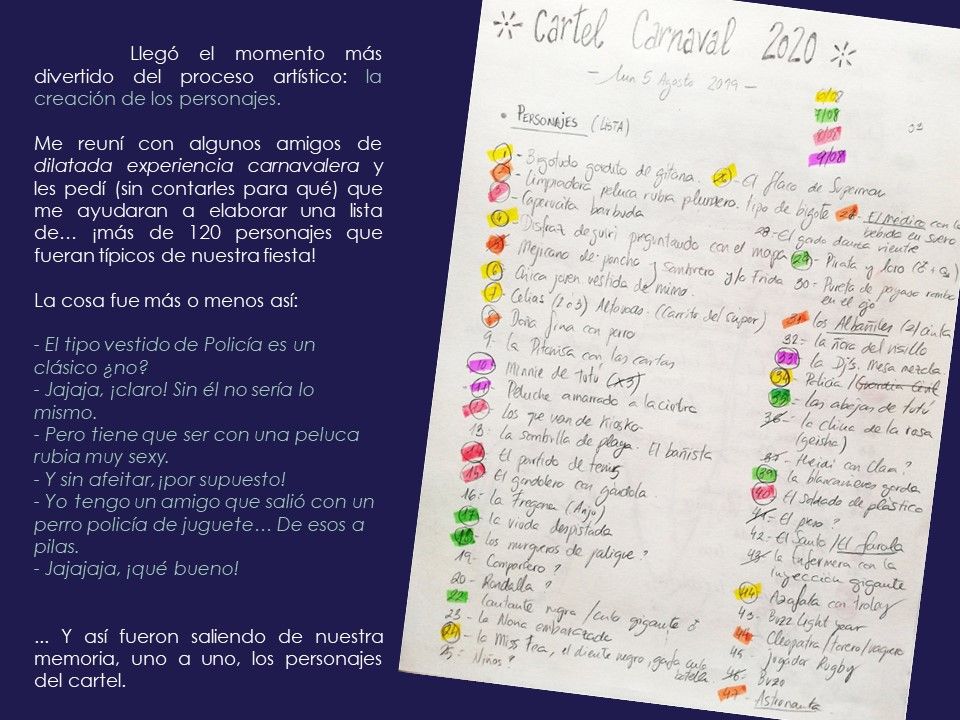 Llegó el momento más
divertido del proceso artístico: la
creación de los personajes.
Me reuní con algunos amigos de
dilatada experiencia carnavalera y
les pedí (sin contarles para qué) que
me ayudaran a elaborar una lista
de… ¡más de 120 personajes que
fueran típicos de nuestra fiesta!
La cosa fue más o menos así:
- El tipo vestido de Policía es un
clásico ¿no?
- Jajaja, ¡claro! Sin él no sería lo
mismo.
- Pero tiene que ser con una peluca
rubia muy sexy.
- Y sin afeitar, ¡por supuesto!
- Yo tengo un amigo que salió con un
perro policía de juguete… De esos a
pilas.
- Jajajaja, ¡qué bueno!
... Y así fueron saliendo de nuestra
memoria, uno a uno, los personajes
del cartel.
Cartel Carnaval 2020
- lun 5 Agosto 2019 -
6/08
7/08
8/08
9/08
• PERSONAJES (LISTA)
1 - Bigotudo gordito de gitana.
2 - Limpiadora peluca rubia plumero. tipo de bigote
3 - Caperucita barbuda
4 - Disfraz de guiri preguntando con el mapa
5 - Mejicano de poncho y sombrero y/o Frida
6 - Chica joven vestida de mimo.
7 - Celias (2 o 3) (Carrito del super)
8 - Doña fina con perro
9. la Pitonisa con las cartas
10 - Minnie de tutú (x3)
11 - Peluche amarrado a la cintura
12 - Los que van de Kiosko
13 - la sombrilla de playa. El bañista
14 - El partido de tenis
15 - El gondolero con góndola.
16 - la Fregona (Anju)
17 - la viuda despistada
18 - los murgueros de palique?
19 - Comparsero?
20 - Rondalla?
22 - Cantante negra / culo gigante
23 - la Novia embarazada
24 - la Miss Fea, el diente negro, gafa culo
botella.
25 - Niños?
- El flaco de Superman
- El medico con la
bebida en suero
28 - El gordo danza vientre
29 - Pirata y loro
30 - Pureta de payaso rombo
en el ojo
31 - los Albañiles (2) cinta
32 - la ñora del visillo
33 - la Dj's. Mesa mezcla.
34 - Policia / Guardia Civil
35 - las abejas de tutú
36 - la china de la rosa
(geisha)
37 - Heidi con Clara?
39 - la blancanieves gorda
40 - El soldado de plástico
41 - El perro?
42 - El Santo / El farola
43 - la Enfermera con la
inyección gigante
44 - Azafata con troley
43 - Buzz light year
44 - Cleopatra / torero / vaquero
45 - jugador Rugby
46 - Buzo
47 - Astronauta